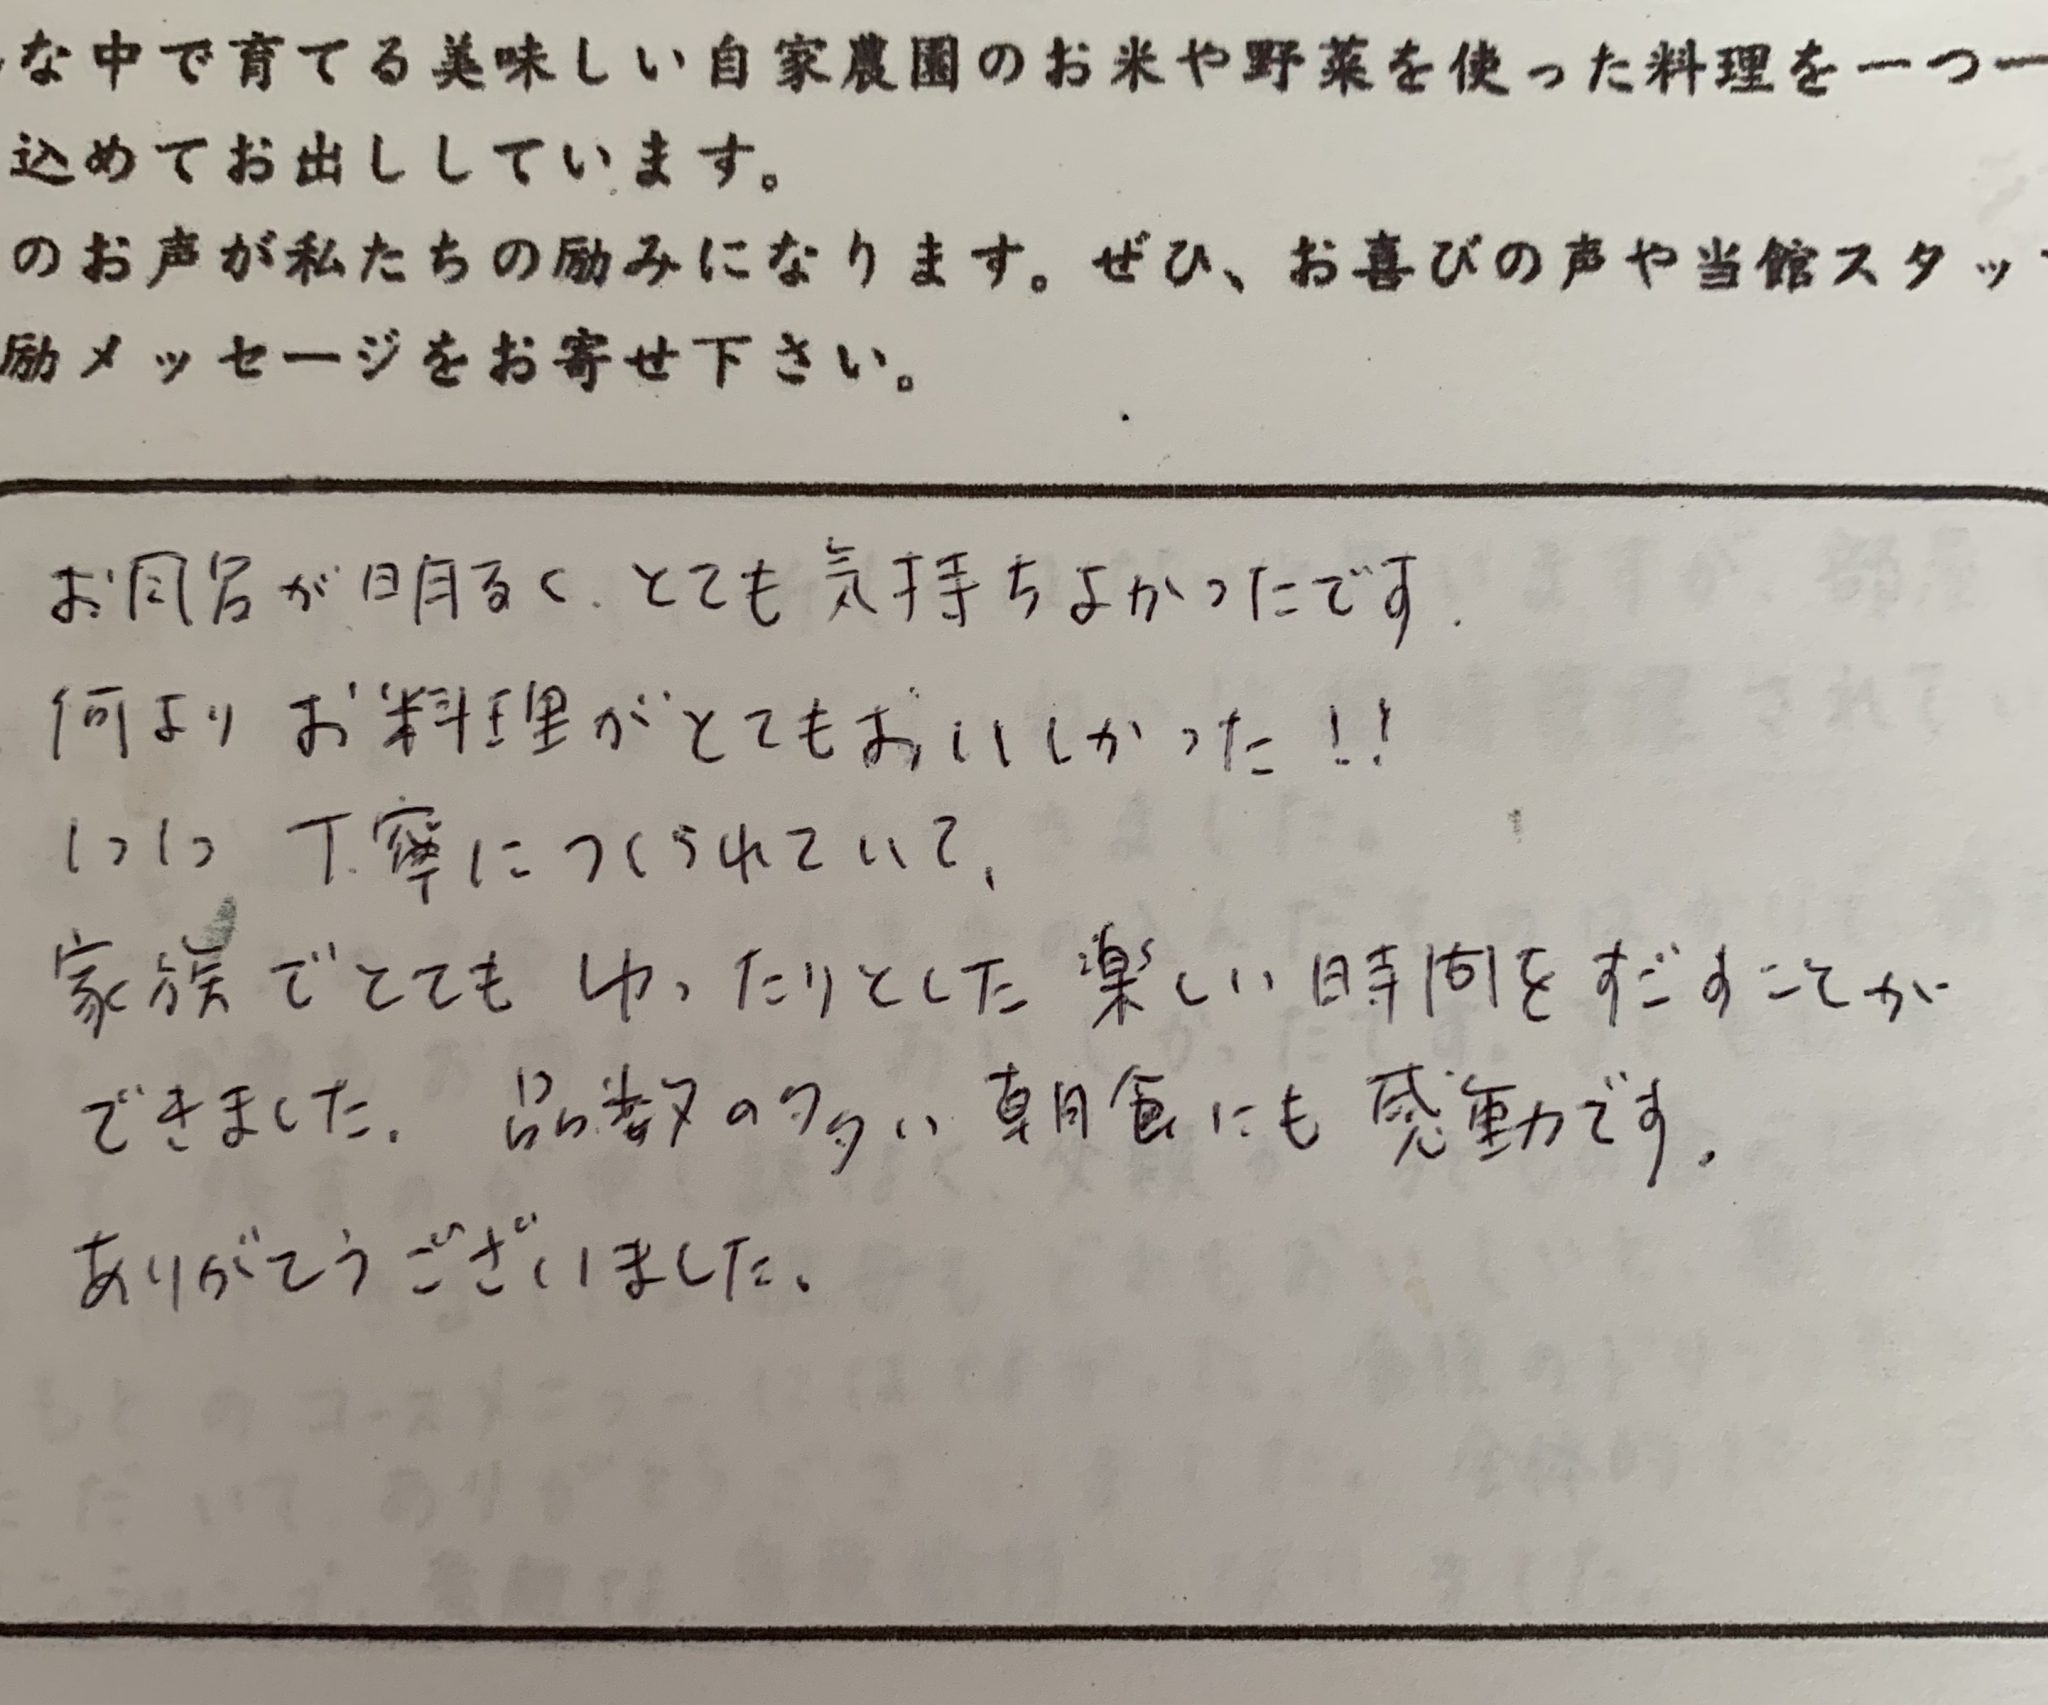 な中で育てる美味しい自家農園のお米や野菜を使った料理を一つ一
込めてお出ししています。
のお声が私たちの励みになります。ぜひ、お喜びの声や当館スタッ
励メッセージをお寄せ下さい。
お風呂が明るく、とても気持ちよかったです。
何より お料理がとてもおいしかった!!
1つ1つ 丁寧につくられていて、
家族でとても ゆったりとした 楽しい時間をすごすことが
できました。 品数の多い 朝食にも 感動です。
ありがとうございました。